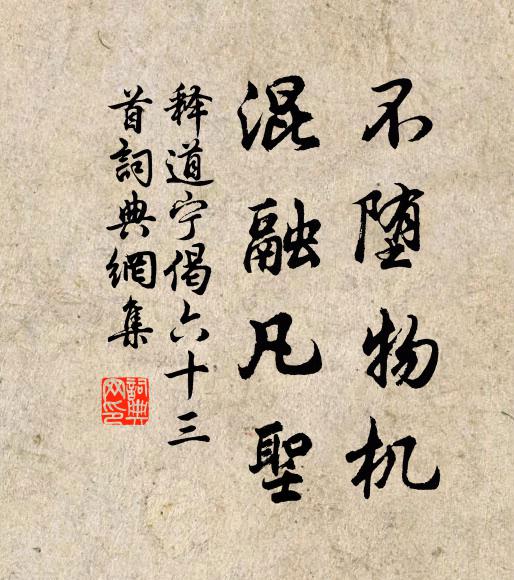 不堕物机
混融凡聖
释道宁偈六十三
首詞典網集
詞典
网印